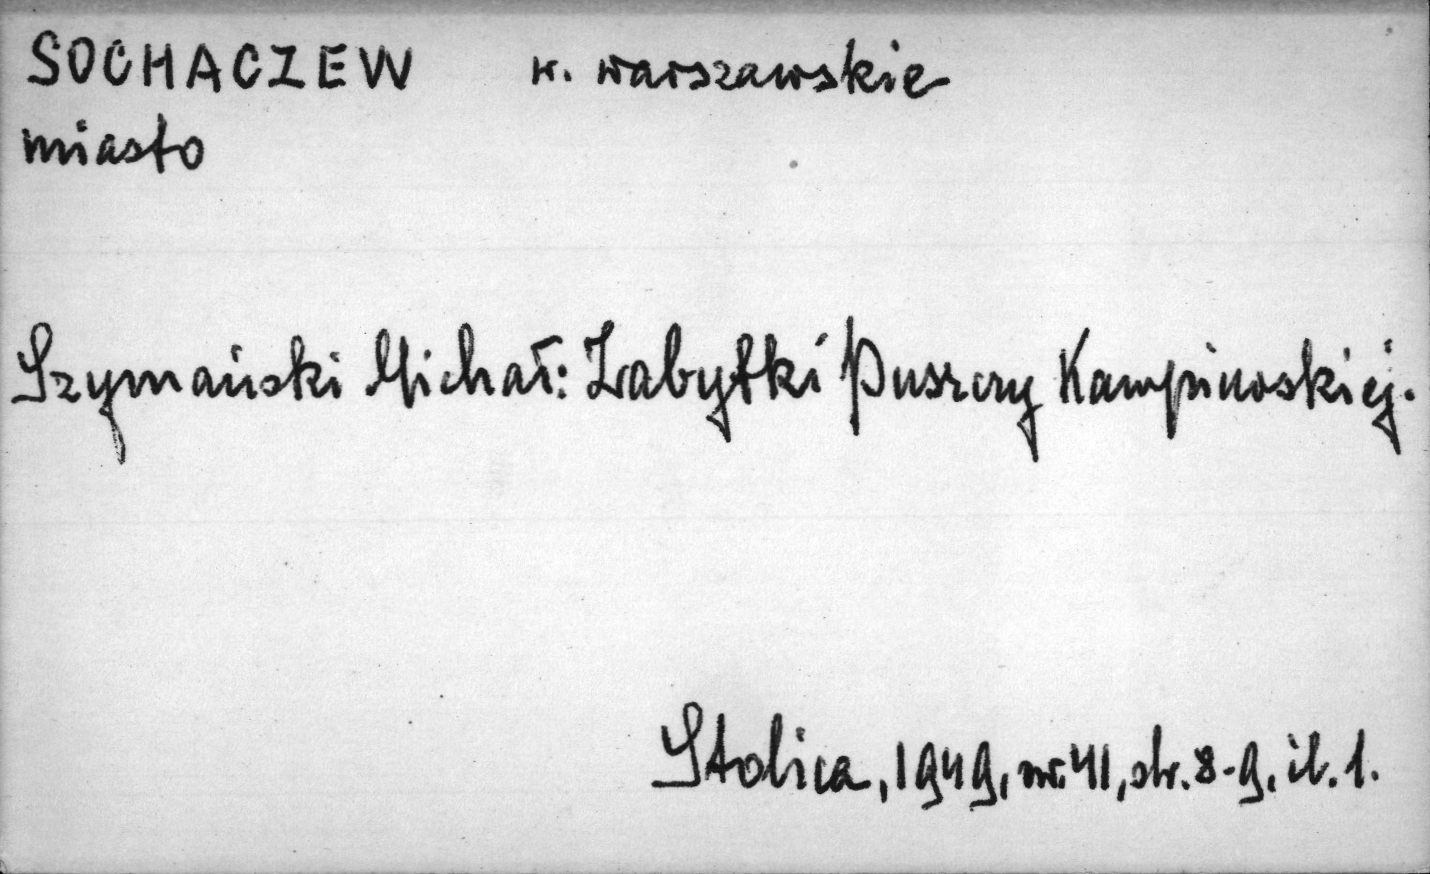 SOCHACZEW w. warszawskie
miasto
Szymański Michał: Zabytki Puszczy Kampinoskiej.
Stolica, 1949, nr. 41, str. 8-9, il. 1.